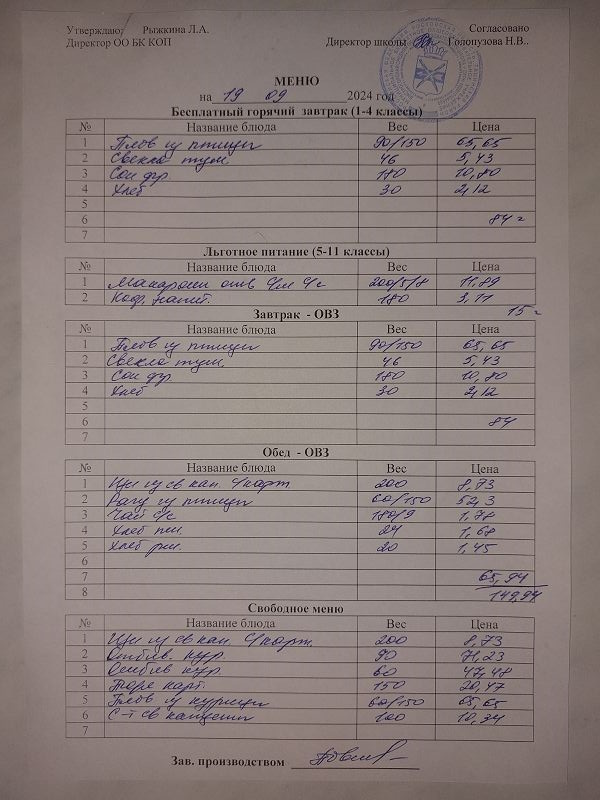 Утверждаю; Рыжкина Л.А. Согласовано
Директор ОО БК КОП Директор школы Голопузова Н.В..
МЕНЮ
на 19 09 2024 год
Бесплатный горячий завтрак (1-4 классы)
№ Название блюда Вес Цена
1 Плов из птицы 90/150 65,65
2 Свекла туш 46 5,43
3 Сок фр. 180 10,80
4 Хлеб 30 2,12
5
6 84=
7
Льготное питание (5-11 классы)
№ Название блюда Вес Цена
1 Макароны отв с/м с/с 200/5/8 11,89
2 Коф. напит. 180 3,11
15=
Завтрак - ОВЗ
№ Название блюда Вес Цена
1 Плов из птицы 90/150 65,65
2 Свекла туш. 46 5,43
3 Сок фр. 180 10,80
4 Хлеб 30 2,12
5
6 84
7
Обед - ОВЗ
№ Название блюда Вес Цена
1 Щи из св кап. с/карт 200 8,73
2 Рагу из птицы 60/150 52,3
3 Чай с/с 180/9 1,78
4 Хлеб пш. 24 1,68
5 Хлеб рж. 20 1,45
6
7 65,94
8 149,94
Свободное меню
№ Название блюда Вес Цена
1 Щи из св кап. с/карт. 200 8,73
2 Отбив. кур. 90 71,23
3 кур. 60 47,48
4 Пюре карт. 150 20,47
5 Плов из курицы 60/150 65,65
6 С-т св капусты 100 10,34
7
Зав. производством